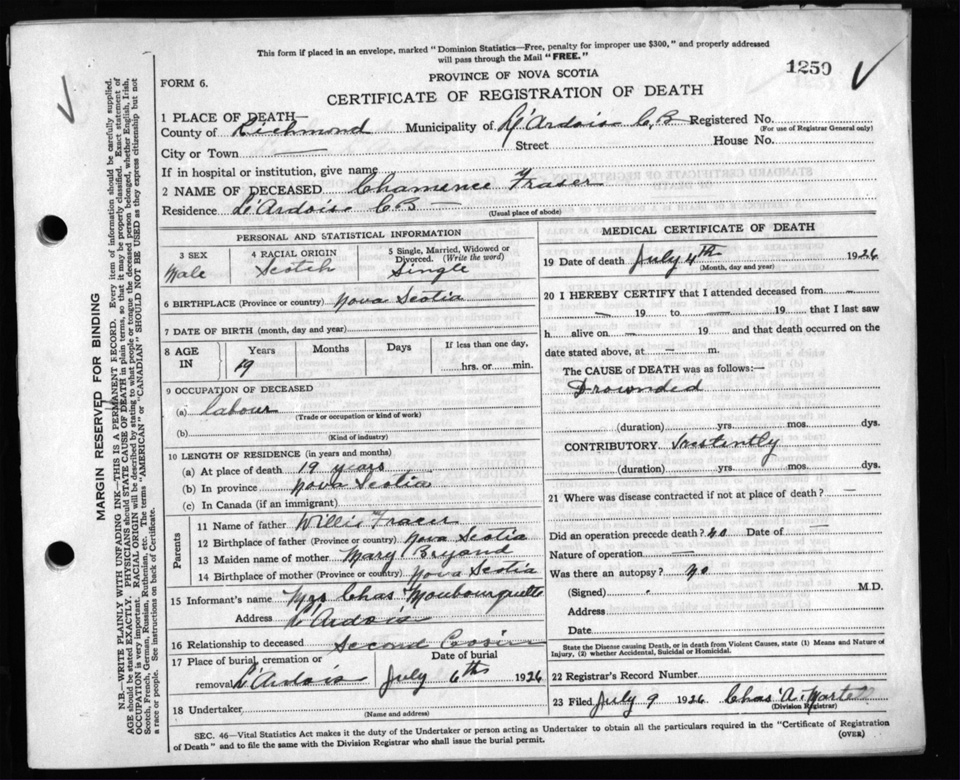 This form if placed in an envelope, marked "Dominion Statistics—Free, penalty for improper use $300," and properly addressed
will pass through the Mail "FREE."
1259
PROVINCE OF NOVA SCOTIA
FORM 6.
CERTIFICATE OF REGISTRATION OF DEATH
1 PLACE OF DEATH—
County of Richmond Municipality of L'Ardoise C,B Registered No.
(For use of Registrar General only)
City or Town — Street House No.
If in hospital or institution, give name
2 NAME OF DECEASED Chamence Fraser
Residence L'Ardoise CB —
(Usual place of abode)
PERSONAL AND STATISTICAL INFORMATION
3 SEX 4 RACIAL ORIGIN 5 Single, Married, Widowed or
Divorced. (Write the word)
Male Scotch Single
6 BIRTHPLACE (Province or country) Nova Scotia
7 DATE OF BIRTH (month, day and year)
8 AGE IN Years Months Days If less than one day,
19 hrs. or min.
9 OCCUPATION OF DECEASED
(a) labour
(Trade or occupation or kind of work)
(b)
(Kind of industry)
10 LENGTH OF RESIDENCE (in years and months)
(a) At place of death 19 years
(b) In province Nova Scotia
(c) In Canada (if an immigrant)
Parents
11 Name of father Willis Fraser
12 Birthplace of father (Province or country) Nova Scotia
13 Maiden name of mother Mary Bryond
14 Birthplace of mother (Province or country) Nova Scotia
15 Informant's name Mrs Chas Moubourquette
Address L'Ardois
16 Relationship to deceased Second Cosin
17 Place of burial, cremation or Date of burial
removal L'Ardois July 6th 1926
18 Undertaker
(Name and address)
MEDICAL CERTIFICATE OF DEATH
19 Date of death July 4th 1926
(Month, day and year)
20 I HEREBY CERTIFY that I attended deceased from —
— 19 to — 19 that I last saw
h alive on — 19 and that death occurred on the
date stated above, at — m.
The CAUSE of DEATH was as follows:—
Drownded
(duration) yrs. mos. dys.
CONTRIBUTORY Instintly
(duration) yrs. mos. dys.
21 Where was disease contracted if not at place of death? —
Did an operation precede death? no Date of —
Nature of operation —
Was there an autopsy? no
(Signed) M.D.
Address
Date
State the Disease causing Death, or in death from Violent Causes, state (1) Means and Nature of
Injury, (2) whether Accidental, Suicidal or Homicidal.
22 Registrar's Record Number
23 Filed July 9 1926 Chas A. Martell
(Division Registrar)
SEC. 46—Vital Statistics Act makes it the duty of the Undertaker or person acting as Undertaker to obtain all the particulars required in the "Certificate of Registration
of Death" and to file the same with the Division Registrar who shall issue the burial permit.
(OVER)
MARGIN RESERVED FOR BINDING
N.B.—WRITE PLAINLY WITH UNFADING INK—THIS IS A PERMANENT RECORD. Every item of information should be carefully supplied.
AGE should be stated EXACTLY. PHYSICIANS should STATE CAUSE OF DEATH in plain terms, so that it may be properly classified. Exact statement of
OCCUPATION is very important. RACIAL ORIGIN will be described by stating to what people or tongue the deceased person belonged, whether English, Irish,
Scotch, French, German, Russian, Ruthenian, etc. The terms "AMERICAN" or "CANADIAN" SHOULD NOT BE USED as they express citizenship but not
a race or people. See instructions on back of Certificate.